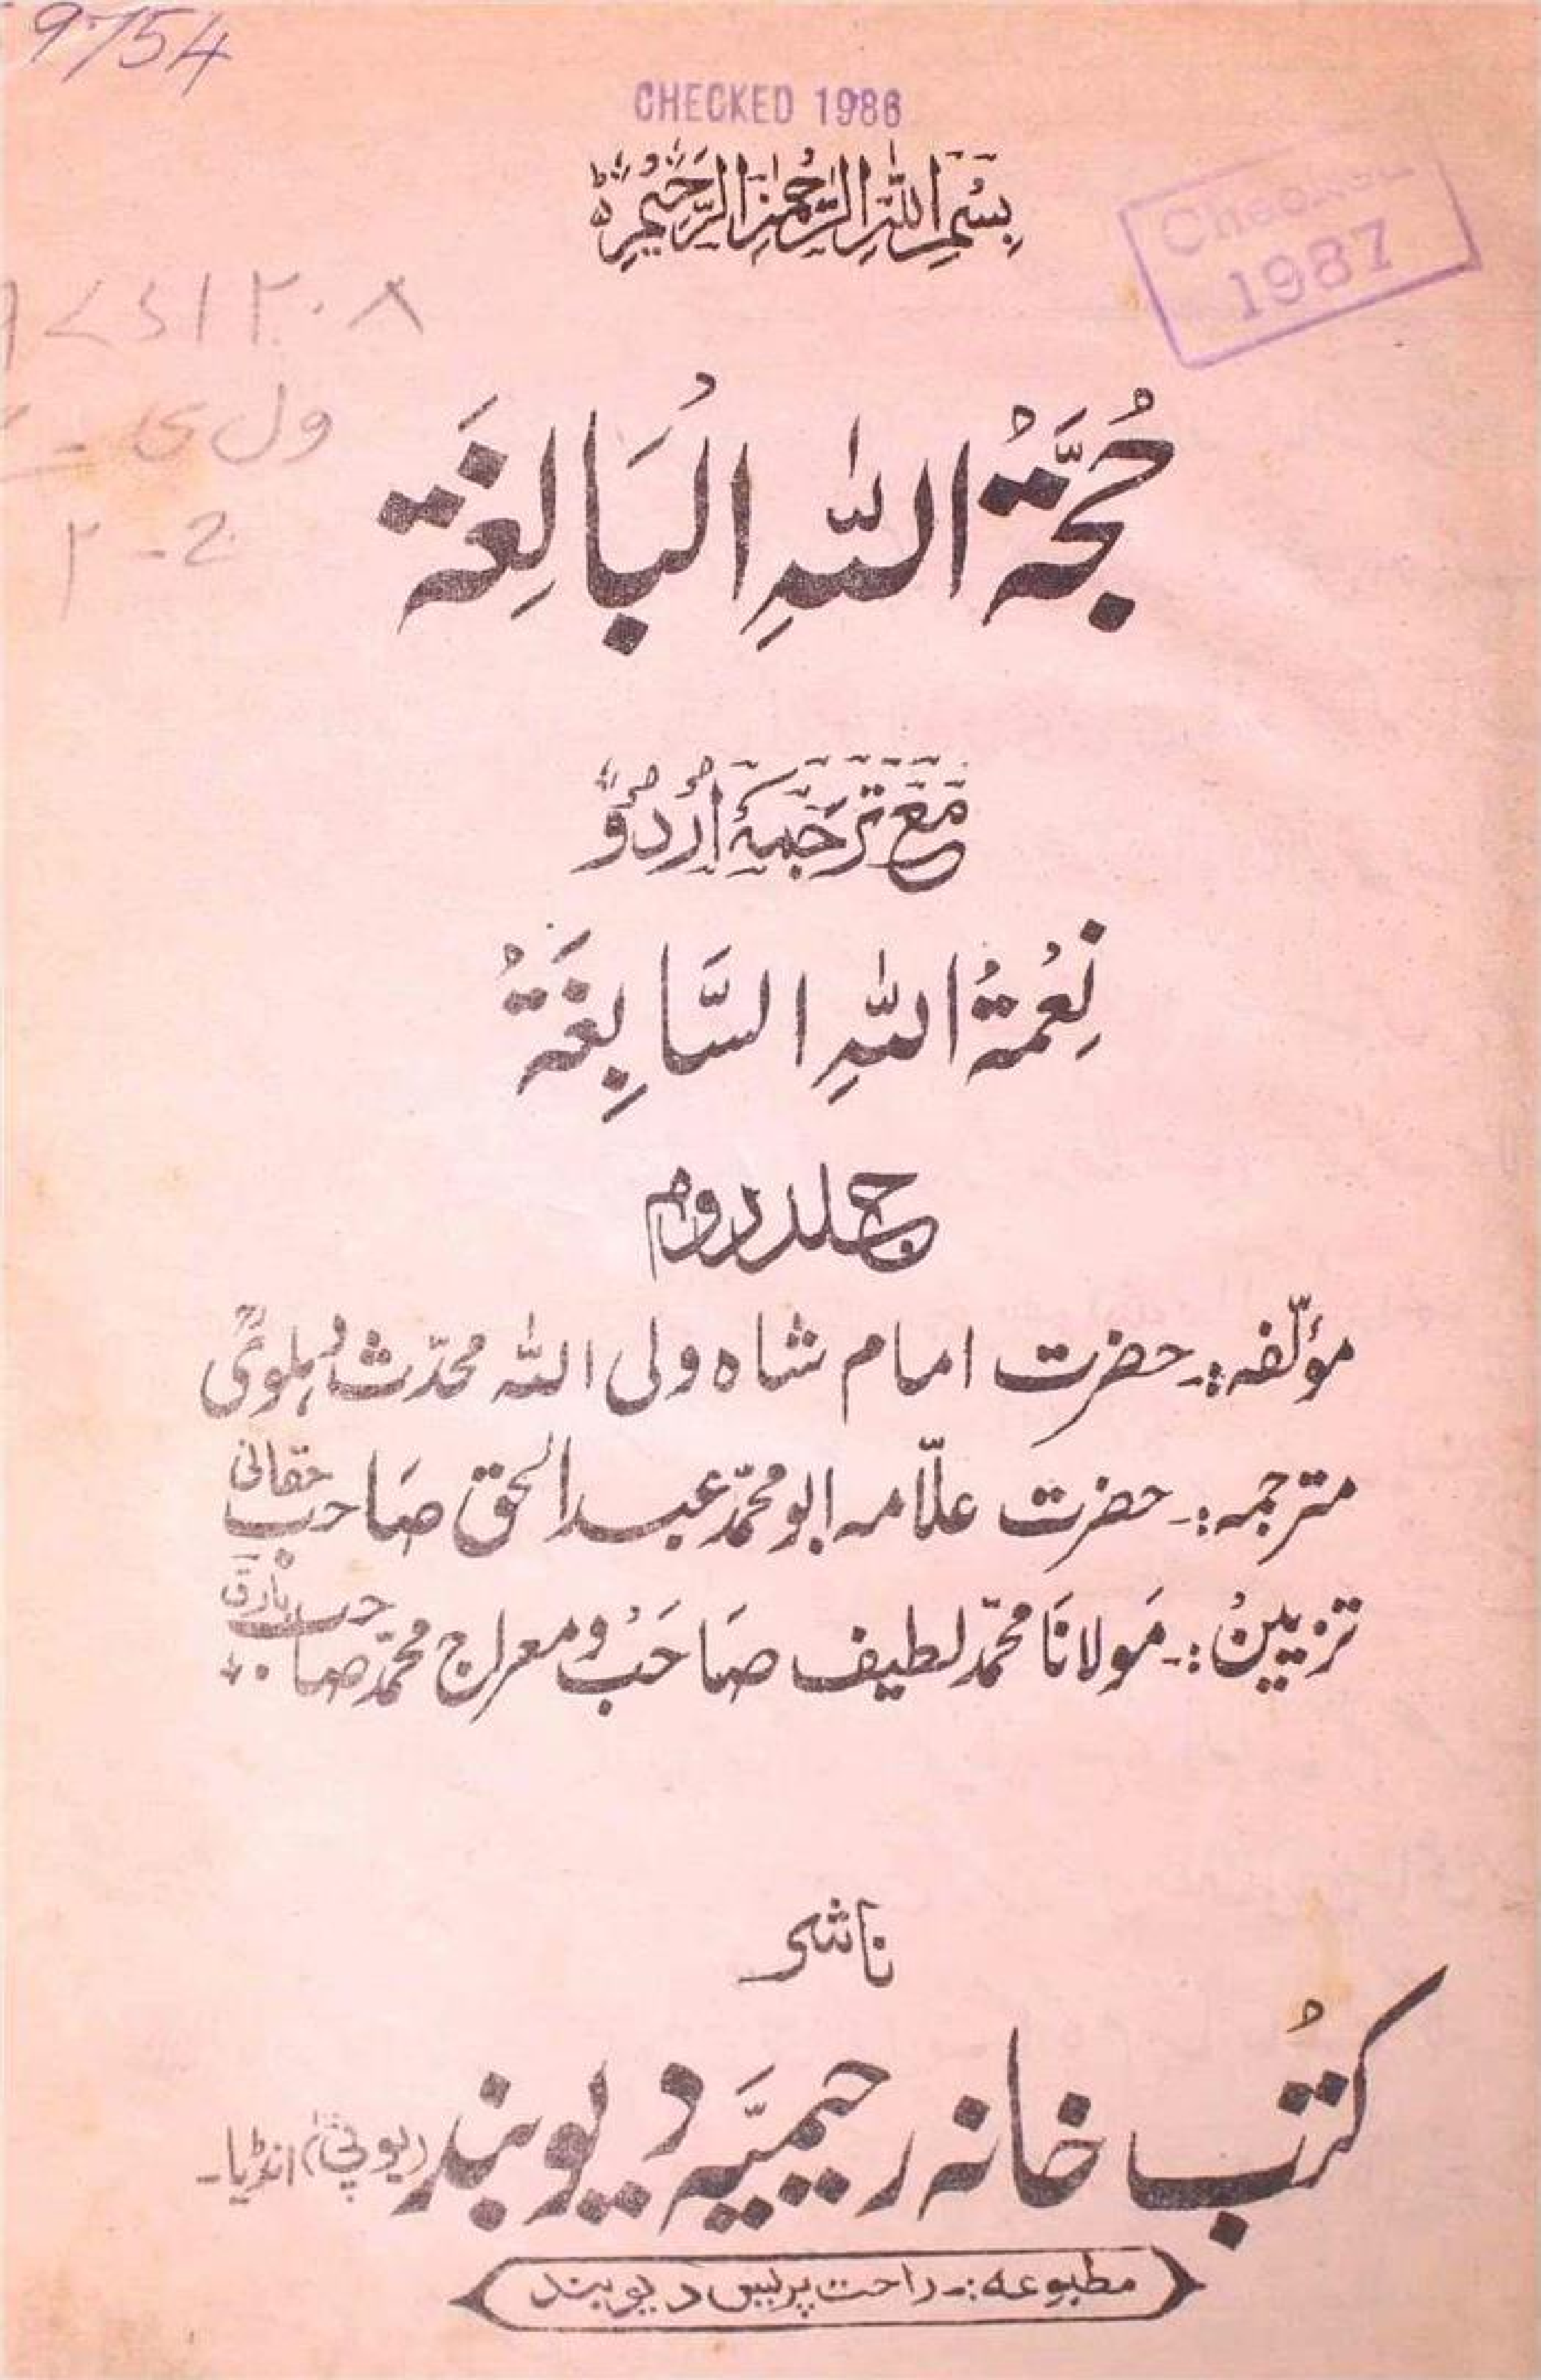 9754
CHECKED 1986
بِسْمِ اللّٰهِ الرَّحْمٰنِ الرَّحِيْمِ
Checked
1987
۲۰۸
ول ی
۲-2
حُجَّةُ اللّٰهِ الْبَالِغَة
مَعَ تَرجَمَۂ اُردُو
نِعْمَةُ اللّٰهِ السَّابِغَةُ
جلد دوم
مؤلّفہ:۔ حضرت امام شاہ ولی اللہ محدّث دہلویؒ
مترجمہ:۔ حضرت علّامہ ابو محمّد عبدالحق صَاحب حقانی
تزیین:۔ مَولانَا محمّد لطیف صَاحبُ و معراج محمّد صاحب بارق
ناشر
کتُب خانہ رحیمیَّہ دیوبند (یوپی) انڈیا۔
مطبوعہ:۔ راحت پریس دیوبند